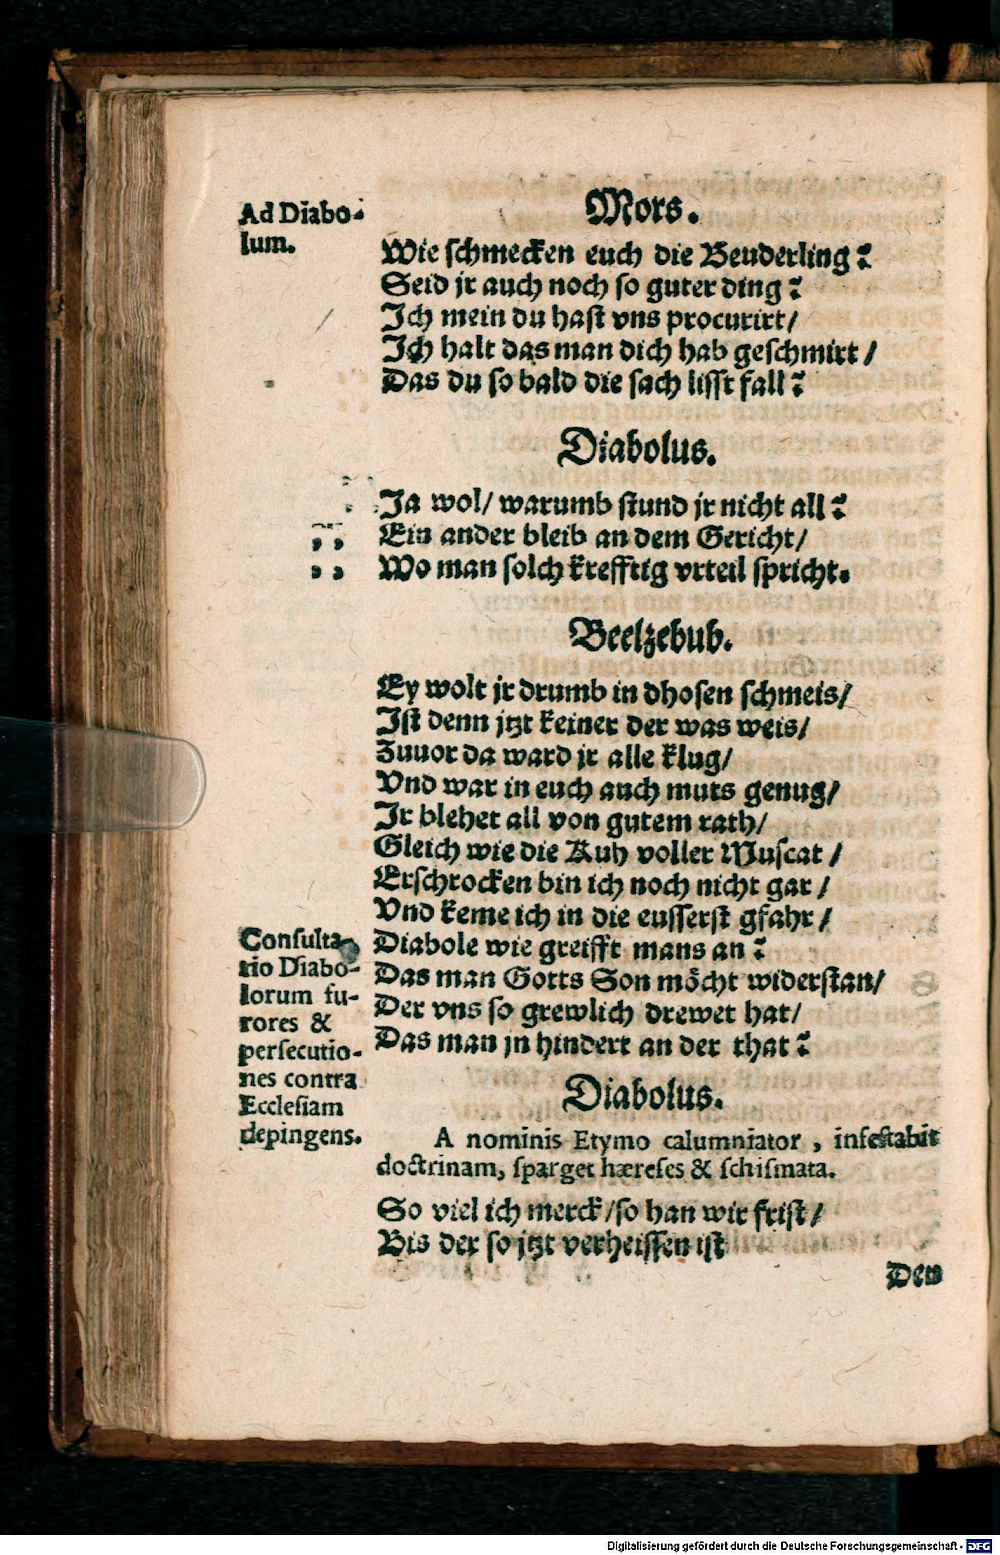 Ad Diabo-
lum.
Mors.
Wie schmecken euch die Beuderling?
Seid jr auch noch so guter ding?
Ich mein du hast vns procurirt/
Ich halt das man dich hab geschmirt/
Das du so bald die sach lisst fall?
Diabolus.
Ja wol/ warumb stund jr nicht all?
Ein ander bleib an dem Gericht/
Wo man solch krefftig vrteil spricht.
Beelzebub.
Ey wolt jr drumb in dhosen schmeis/
Ist denn jtzt keiner der was weis/
Zuuor da ward jr alle klug/
Vnd war in euch auch muts genug/
Ir blehet all von gutem rath/
Gleich wie die Kuh voller Muscat/
Erschrocken bin ich noch nicht gar/
Vnd keme ich in die eusserst gfahr/
Consulta-
tio Diabo-
lorum fu-
rores &
persecutio-
nes contra
Ecclesiam
depingens.
Diabole wie greifft mans an?
Das man Gotts Son möcht widerstan/
Der vns so grewlich drewet hat/
Das man jn hindert an der that?
Diabolus.
A nominis Etymo calumniator, infestabit
doctrinam, sparget hæreses & schismata.
So viel ich merck/so han wir frist/
Bis der so jtzt verheissen ist
Den
Digitalisierung gefördert durch die Deutsche Forschungsgemeinschaft - DFG